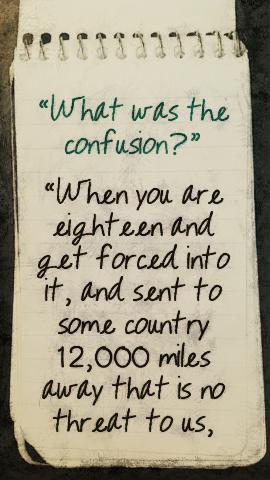 "What was the
confusion?"
"When you are
eighteen and
get forced into
it, and sent to
some country
12,000 miles
away that is no
threat to us,